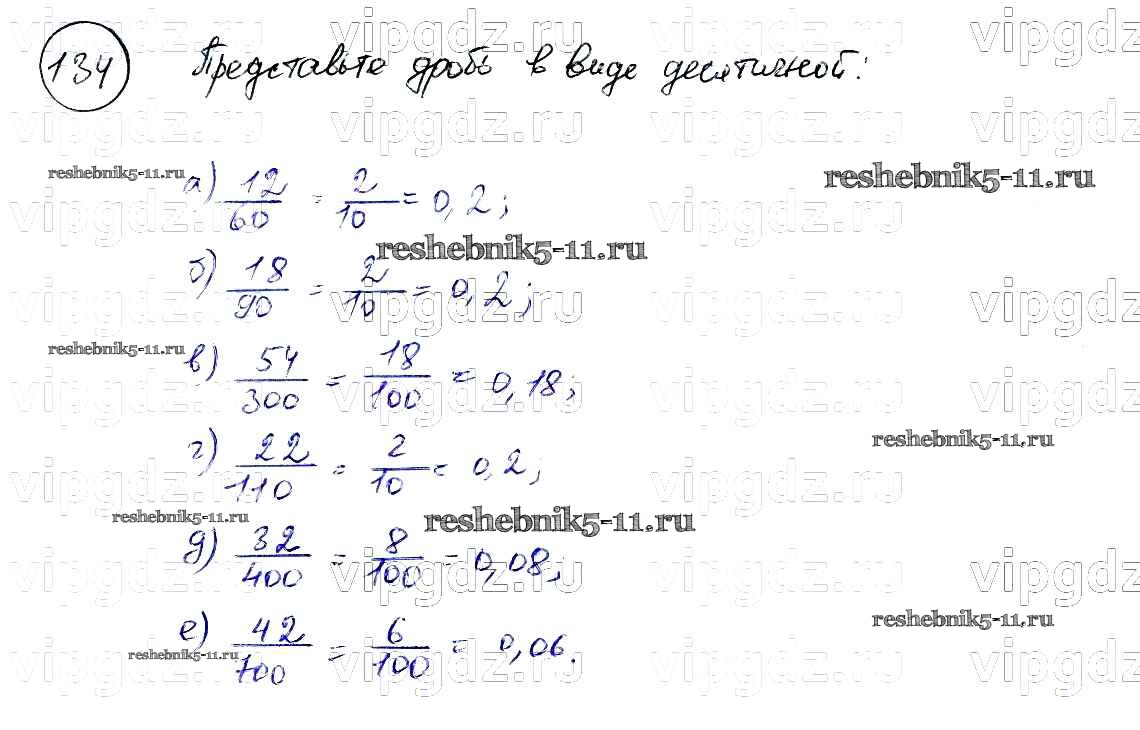 134 Представьте дробь в виде десятичной:
а) 12/60 = 2/10 = 0,2;
б) 18/90 = 2/10 = 0,2;
в) 54/300 = 18/100 = 0,18;
г) 22/110 = 2/10 = 0,2;
д) 32/400 = 8/100 = 0,08;
е) 42/700 = 6/100 = 0,06.
vipgdz.ru
reshebnik5-11.ru